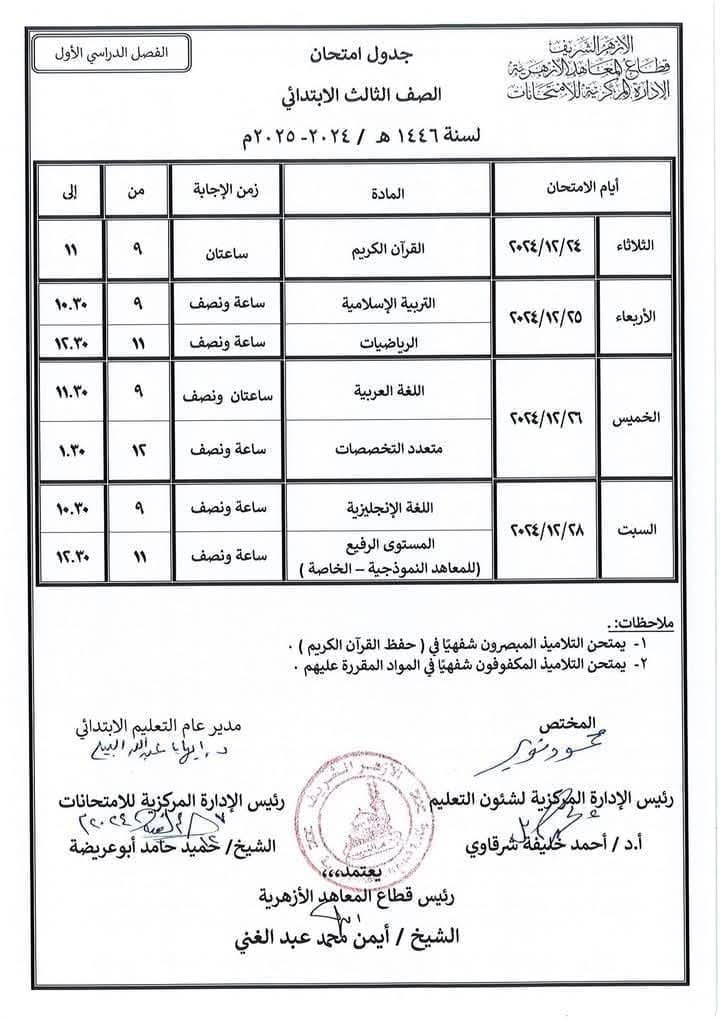 الأزهر الشريف
قطاع المعاهد الأزهرية
الإدارة المركزية للامتحانات
الفصل الدراسي الأول
جدول امتحان
الصف الثالث الابتدائي
لسنة ١٤٤٦ هـ / ٢٠٢٤- ٢٠٢٥م
أيام الامتحان المادة زمن الإجابة من إلى
الثلاثاء ٢٠٢٤/١٢/٢٤ القرآن الكريم ساعتان ٩ ١١
الأربعاء ٢٠٢٤/١٢/٢٥ التربية الإسلامية ساعة ونصف ٩ ١٠.٣٠
الرياضيات ساعة ونصف ١١ ١٢.٣٠
الخميس ٢٠٢٤/١٢/٢٦ اللغة العربية ساعتان ونصف ٩ ١١.٣٠
متعدد التخصصات ساعة ونصف ١٢ ١.٣٠
السبت ٢٠٢٤/١٢/٢٨ اللغة الإنجليزية ساعة ونصف ٩ ١٠.٣٠
المستوى الرفيع ساعة ونصف ١١ ١٢.٣٠
(للمعاهد النموذجية – الخاصة )
ملاحظات: .
١- يمتحن التلاميذ المبصرون شفهيًا في ( حفظ القرآن الكريم ) .
٢- يمتحن التلاميذ المكفوفون شفهيًا في المواد المقررة عليهم .
المختص
مدير عام التعليم الابتدائي
رئيس الإدارة المركزية لشئون التعليم
أ.د / أحمد خليفة شرقاوي
رئيس الإدارة المركزية للامتحانات
الشيخ/ حميد حامد أبوعريضة
الأزهر الشريف
يعتمد،،،
رئيس قطاع المعاهد الأزهرية
الشيخ / أيمن محمد عبد الغني